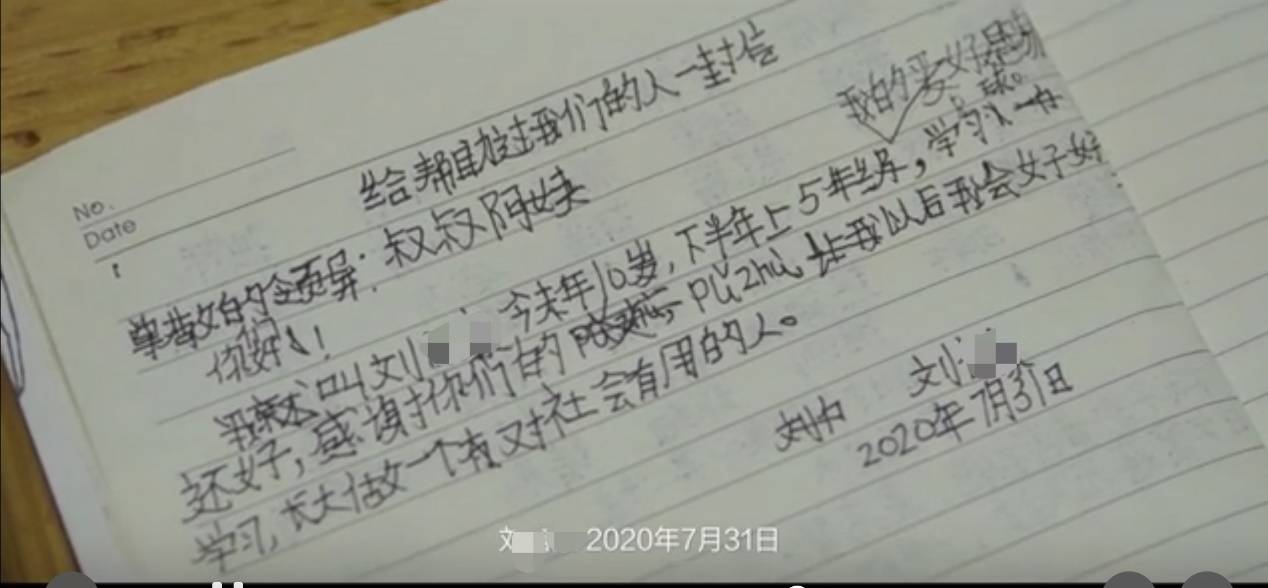 No.
Date
给帮助过我们的人一封信
我的爱好是
球。
尊敬的 叔叔阿姨
你们好!
我叫刘 今年10岁,下半年上5年级,学习
还好,感谢你们的 PU zhu 以后我会好好
学习,长大做一个对社会有用的人。
刘
2020年7月31日
2020年7月31日